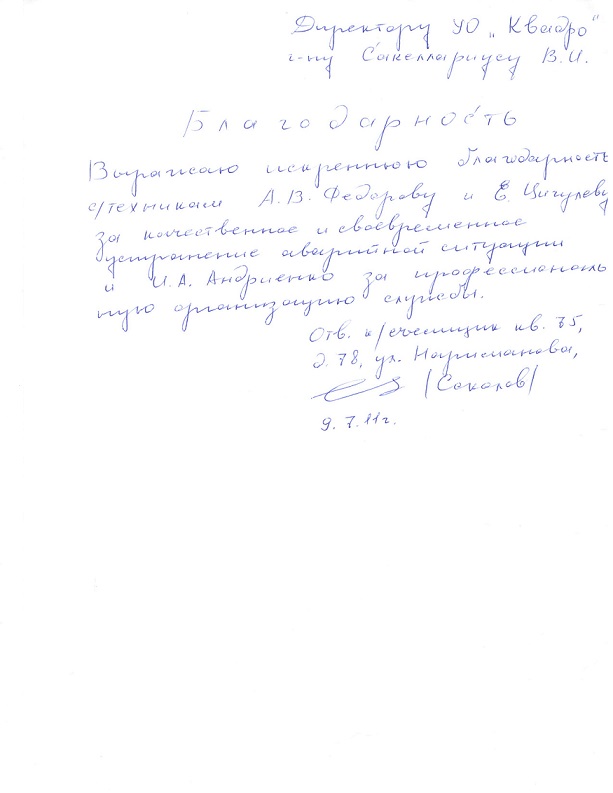 Директору УО „Квадро"
г-ну Сакеллариусу В.И.
Благодарность
Выражаю искреннюю благодарность
с/техникам А.В. Федорову и Е. Цигулеву
за качественное и своевременное
устранение аварийной ситуации
и И.А. Андриенко за профессиональ
ную организацию службы.
Отв. к/съемщик кв. 75,
д. 78, ул. Нариманова,
/Соколов/
9. 7. 11г.